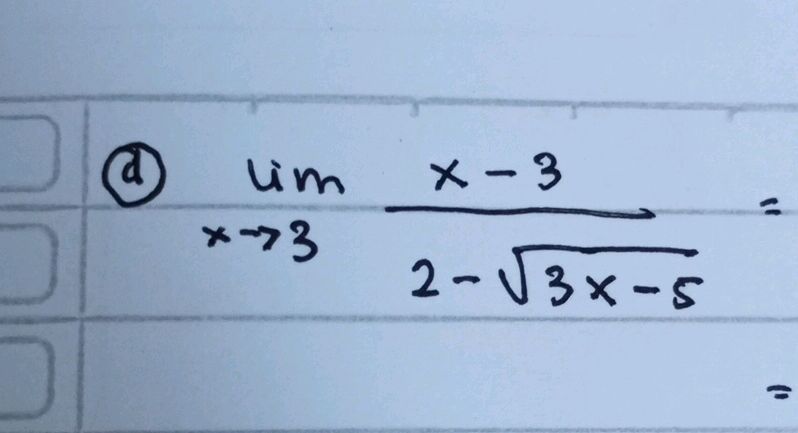 ⓓ lim x→3 (x - 3) / (2 - √(3x - 5)) =
=